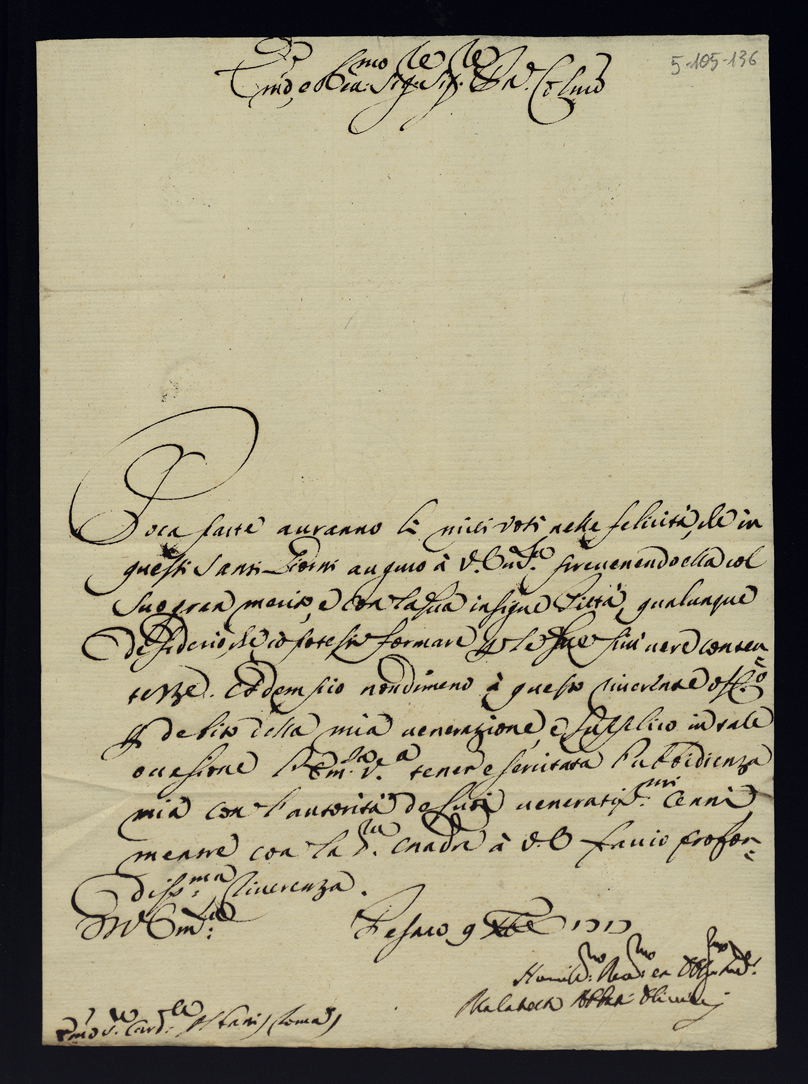 5-105-136
Em͞o, e R͞ea: mo Sig:re Sig:re P͞an: Col͞mo
Poca parte auranno li miei voti nelle felicità, che in
questi Santi Giorni auguro à V. Em:za preuenendo ella col
suo gran merito, e con la sua insigne Pietà, qualunque
desiderio, che io potessi formare per le sue più uere conten-
tezze. Adempio nondimeno à questo riuerente off:o
per debito della mia uenerazione, e supplico in tale
occasione l'Em:za V.a tener esercitata l'ubbidienza
mia con l'autorità de suoi ueneratiss:mi Cenni
mentre con la S:ra à V. E faccio profon-
diss:ma riuerenza.
Di V. Em:za
Pesaro 9 Xbre 1717
Humiliss:mo Deu:mo et Obblig:mo Ser:
Abbati Oliuieri
Em͞o S:r Card:le Albani, Roma